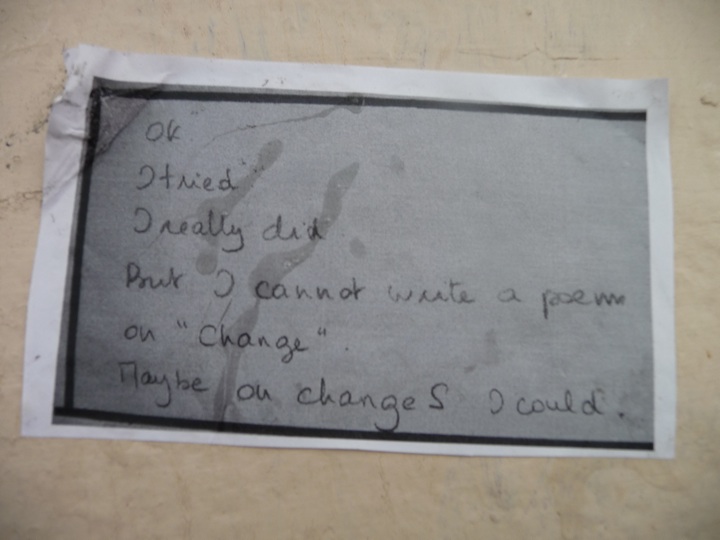 OK
I tried
I really did
But I cannot write a poem
on "Change".
Maybe on changeS I could.